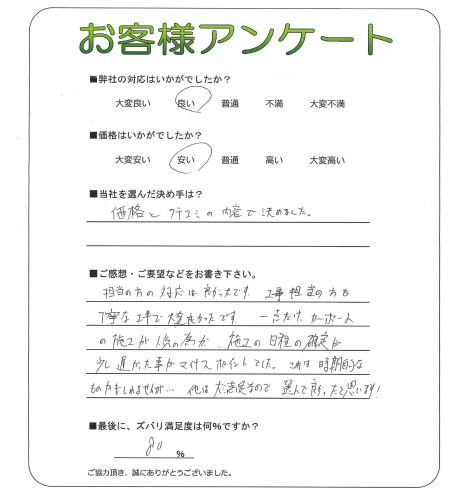 お客様アンケート
■弊社の対応はいかがでしたか？
大変良い 良い 普通 不満 大変不満
■価格はいかがでしたか？
大変安い 安い 普通 高い 大変高い
■当社を選んだ決め手は？
価格とクチコミの内容で決めました。
■ご感想・ご要望などをお書き下さい。
担当の方の対応は良かったです。工事担当の方も
丁寧な工事で大変良かったです。一点だけ、カーポート
の施工が人気の為か、施工の日程の確定が
少し遅かった事がマイナスポイントでした。これは時期的な
ものかもしれませんが… 他は大満足なので選んで良かったと思います！
■最後に、ズバリ満足度は何％ですか？
80 %
ご協力頂き、誠にありがとうございました。